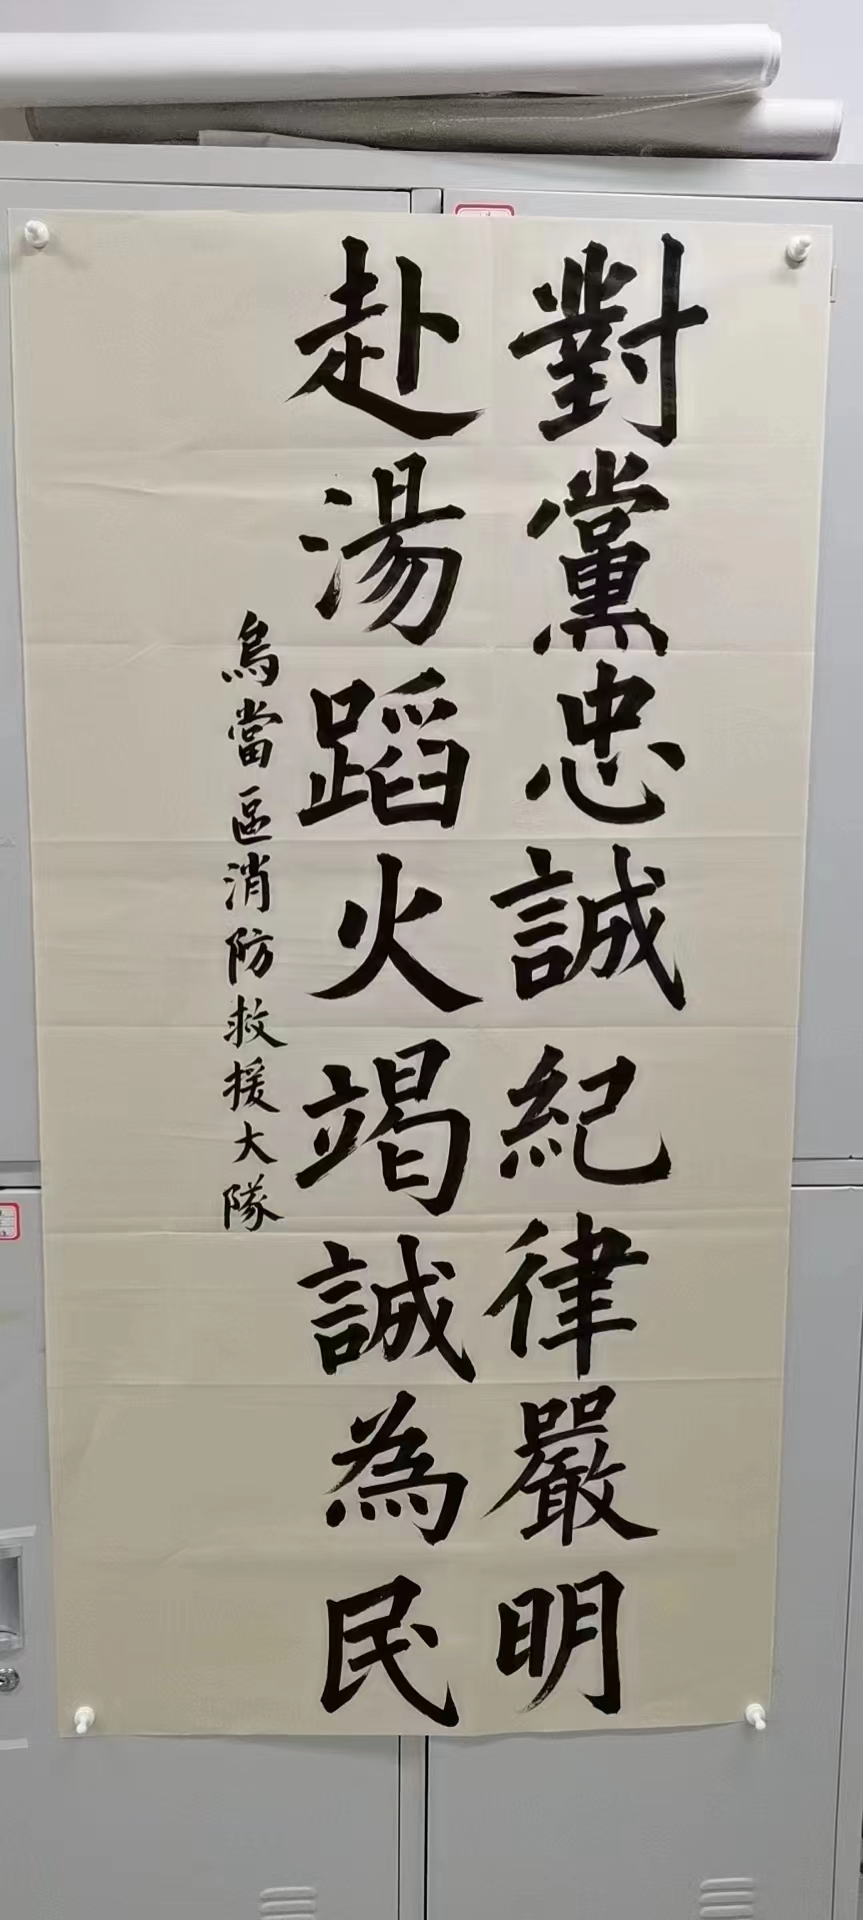 對黨忠誠紀律嚴明
赴湯蹈火竭誠為民
烏當區消防救援大隊